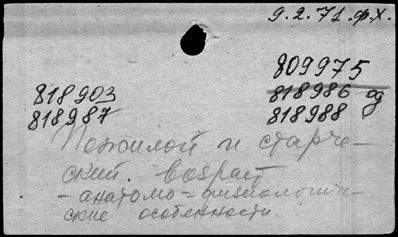 9.2.71.ф.Х.
809975
818903 818986 од
818987 818988
Пожилой и старче-
ский возраст
- анатомо-физиологиче-
ские особенности.